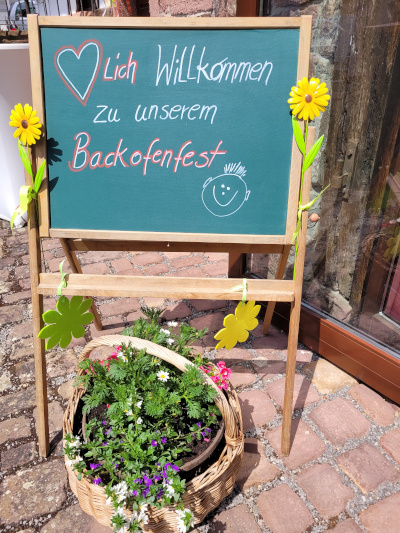 ♡Lich Willkommen
zu unserem
Backofenfest